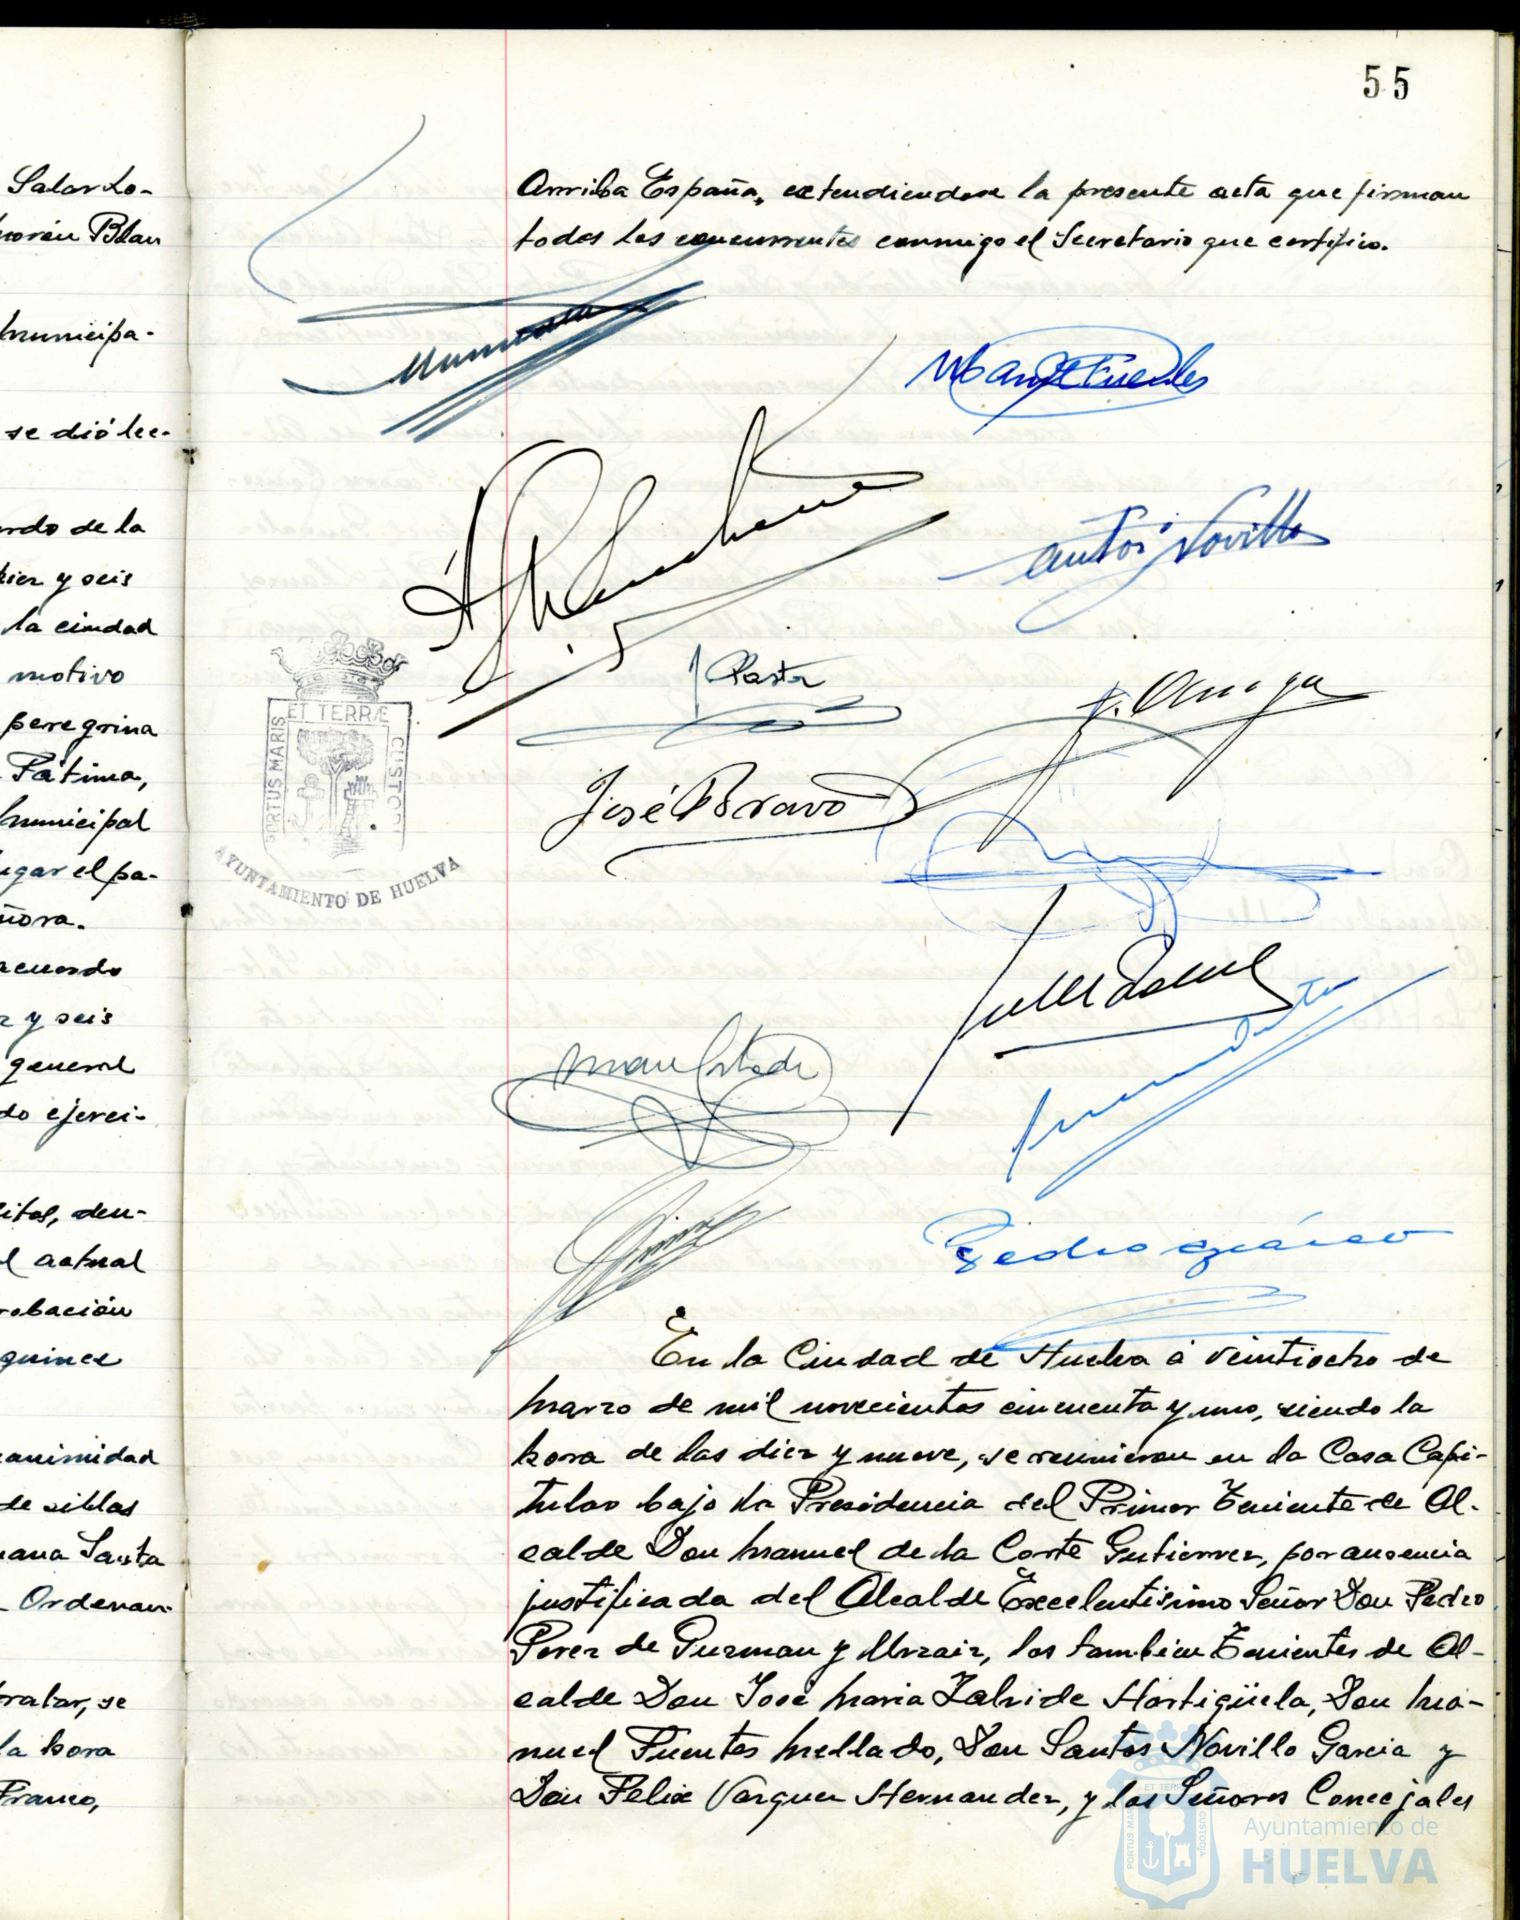 Salar Lo-
Blau
municipa-
se dió lec-
rdo de la
diez y seis
la ciudad
motivo
peregrina
Fátima,
municipal
ugar el pa-
ñora.
acuerdo
z y seis
general
do ejerci-
itos, den-
l actual
robación
quince
animidad
de sillas
mana Santa
Ordenan-
tratar, se
la hora
Franco,
55
Arriba España, extendiendose la presente acta que firman
todos los concurrentes conmigo el Secretario que certifico.
Man Fuentes
Santos Novillo
J Pastor
José Bravo
ET TERRÆ
PORTUS MARIS
CUSTOD
AYUNTAMIENTO DE HUELVA
Pedro
En la Ciudad de Huelva á veintiocho de
Marzo de mil novecientos cincuenta y uno, siendo la
hora de las diez y nueve, se reunieron en la Casa Capi-
tular bajo la Presidencia del Primer Teniente de Al-
calde Don Manuel de la Corte Gutierrez, por ausencia
justificada del Alcalde Excelentisimo Señor Don Pedro
Perez de Guzman y Urzaiz, los tambien Tenientes de Al-
calde Don José Maria Zalvide Hortigüela, Don Ma-
nuel Fuentes Mellado, Don Santos Novillo Garcia y
Don Felix Vazquez Hernandez, y los Señores Concejales
ET TERRÆ
PORTUS MARIS
CUSTODIA
Ayuntamiento de
HUELVA